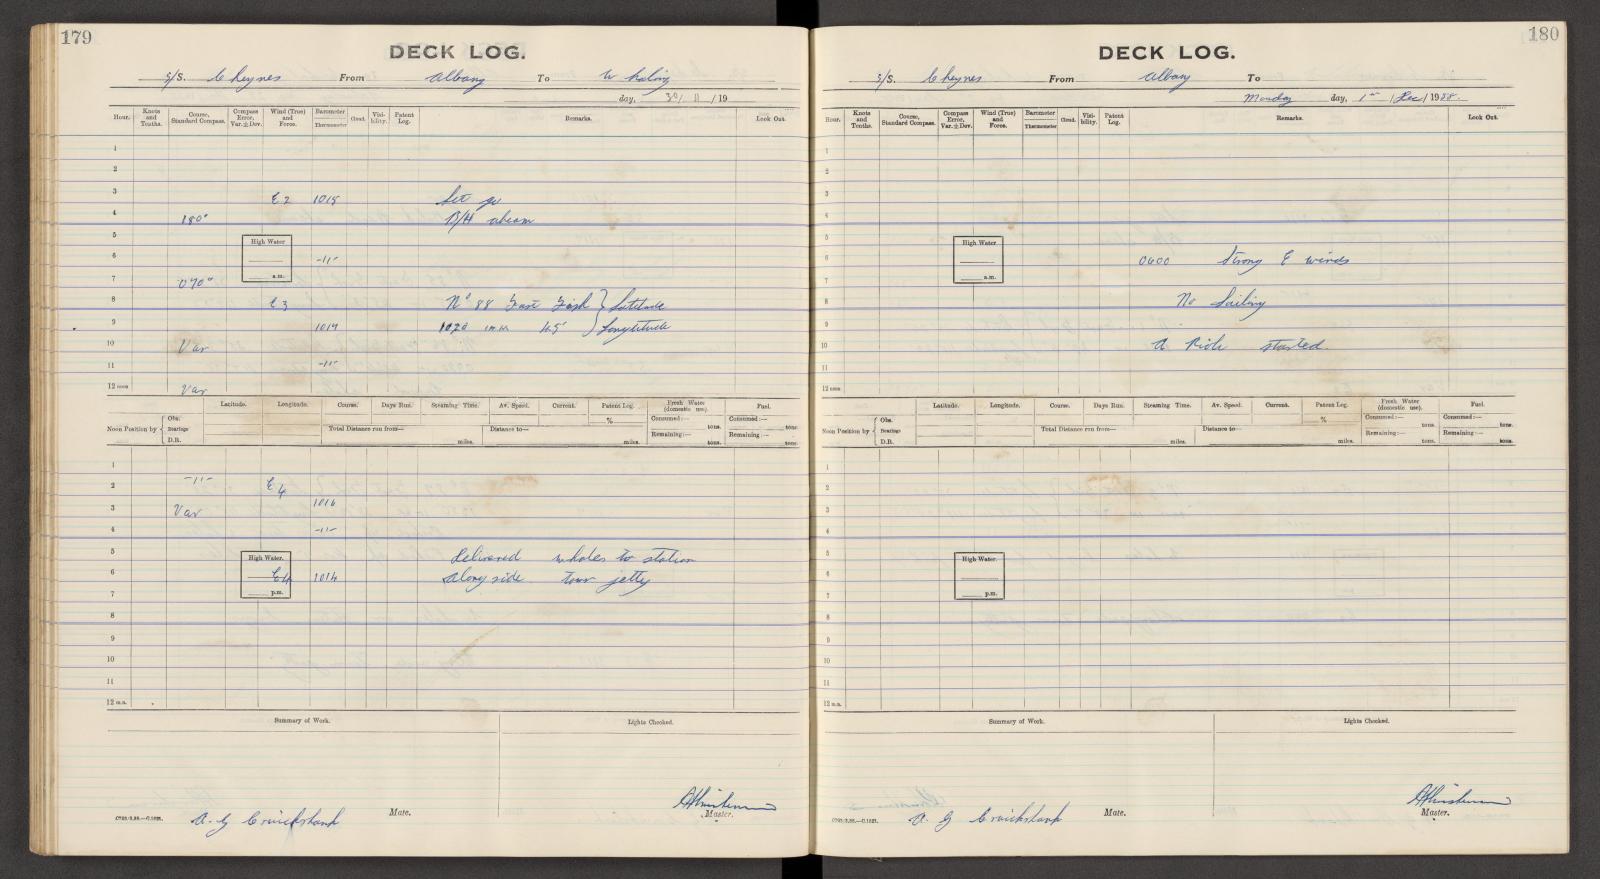 179
DECK LOG.
S/S. Cheynes From Albany To Whaling
day, 30/ 11 /19
Hour. Knots and Tenths. Course, Standard Compass. Compass Error, Var. ± Dev. Wind (True) and Force. Barometer Thermometer Cloud. Visibility. Patent Log. Remarks. Look Out.
1
2
3 E 2 1015 Let go
4 180° B/H abeam
5 High Water
6 -11-
7 070° a.m.
8 E 3 No 88 Fast Fish } Latitude
9 1014 1020 45' } Longtitude
10 Var
11 -11-
12 noon Var
Latitude. Longitude. Course. Days Run. Steaming Time. Av. Speed. Current. Patent Log. Fresh Water (domestic use). Fuel.
Noon Position by { Obs. Bearings D.R. Total Distance run from— miles. Distance to— miles. % Consumed:— tons. Remaining:— tons. Consumed:— tons. Remaining:— tons.
1
2 -11- E 4
3 Var 1016
4 -11-
5 High Water. Delivered whales to station
6 E4 1014 Along side town jetty
7 p.m.
8
9
10
11
12 m.n.
Summary of Work. Lights Checked.
A. G Cruickshank Mate. Master.
180
DECK LOG.
S/S. Cheynes From Albany To
Monday day, 1st /Dec/ 1958.
Hour. Knots and Tenths. Course, Standard Compass. Compass Error, Var. ± Dev. Wind (True) and Force. Barometer Thermometer Cloud. Visibility. Patent Log. Remarks. Look Out.
1
2
3
4
5 High Water
6 0600 Strong E winds
7 a.m.
8 No Sailing
9
10 A Rich started.
11
12 noon
Latitude. Longitude. Course. Days Run. Steaming Time. Av. Speed. Current. Patent Log. Fresh Water (domestic use). Fuel.
Noon Position by { Obs. Bearings D.R. Total Distance run from— miles. Distance to— miles. % Consumed:— tons. Remaining:— tons. Consumed:— tons. Remaining:— tons.
1
2
3
4
5 High Water.
6
7 p.m.
8
9
10
11
12 m.n.
Summary of Work. Lights Checked.
A. G Cruickshank Mate. Master.